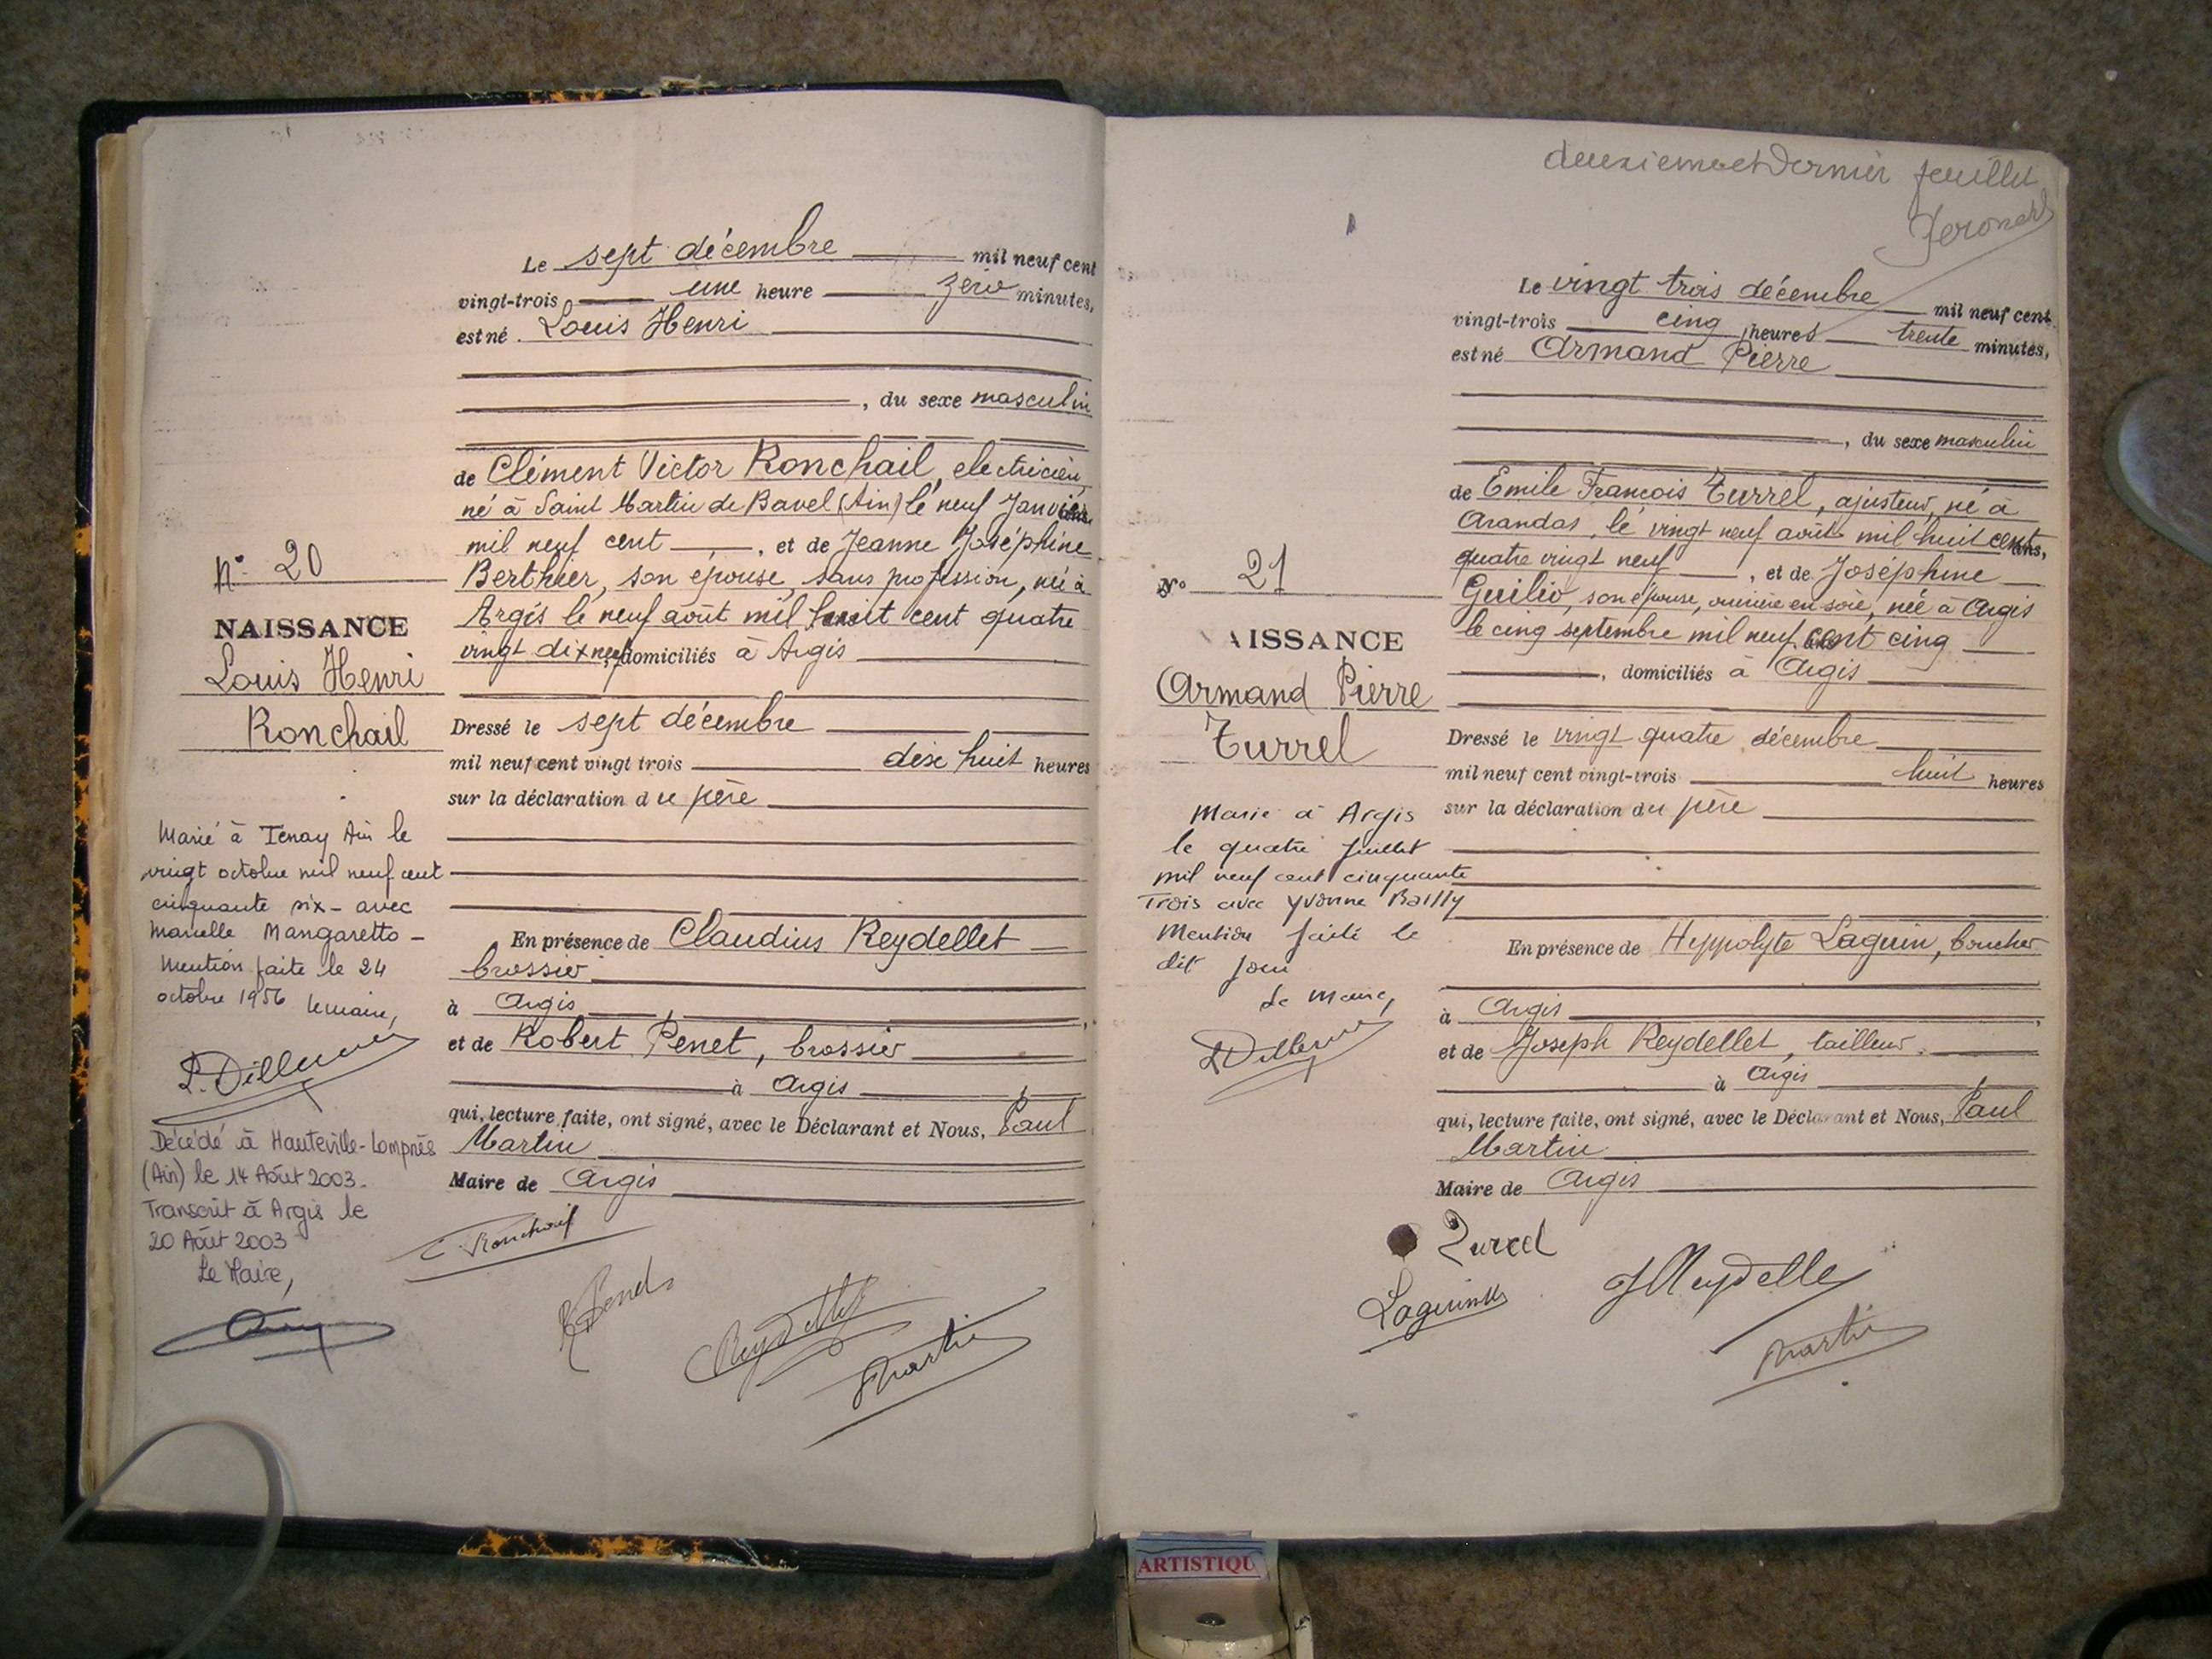 Le sept décembre mil neuf cent
vingt-trois une heure zéro minutes,
est né Louis Henri
, du sexe masculin
de Clément Victor Ronchail, electricien,
né à Saint Martin de Bavel (Ain) le neuf Janvier
mil neuf cent , et de Jeanne Joséphine
Berthier, son epouse, sans profession, née à
Argis le neuf août mil huit cent quatre
vingt dix neuf, domiciliés à Argis
Dressé le sept décembre
mil neuf cent vingt trois dix huit heures
sur la déclaration du père
En présence de Claudius Reydellet
brossier
à Argis
et de Robert Penet, brossier
à Argis
qui, lecture faite, ont signé, avec le Déclarant et Nous, Paul
Martin
Maire de Argis
N° 20
NAISSANCE
Louis Henri
Ronchail
Marié à Tenay Ain le
vingt octobre mil neuf cent
cinquante six - avec
Marcelle Mangaretto -
Mention faite le 24
octobre 1956 le maire,
Décédé à Hauteville-Lompnès
(Ain) le 14 Août 2003.
Transcrit à Argis le
20 Août 2003
Le Maire,
Ronchail
Reydellet
Martin
deuxieme et Dernier feuillet
Le vingt trois décembre mil neuf cent
vingt-trois cinq heures trente minutes,
est né Armand Pierre
, du sexe masculin
de Emile François Turrel, ajusteur, né à
Arandas, le vingt neuf août mil huit cent
quatre vingt neuf , et de Joséphine
Guilio, son épouse, ouvrière en soie, née à Argis
le cinq septembre mil neuf cent cinq
, domiciliés à Argis
Dressé le vingt quatre décembre
mil neuf cent vingt-trois huit heures
sur la déclaration du père
En présence de Hyppolyte Laguin, boucher
à Argis
et de Joseph Reydellet, tailleur
à Argis
qui, lecture faite, ont signé, avec le Déclarant et Nous, Paul
Martin
Maire de Argis
N° 21
AISSANCE
Armand Pierre
Turrel
Marié à Argis
le quatre Juillet
mil neuf cent cinquante
Trois avec Yvonne Bailly
Mention faite le
dit jour
Le Maire,
Turrel
Martin
ARTISTIQU